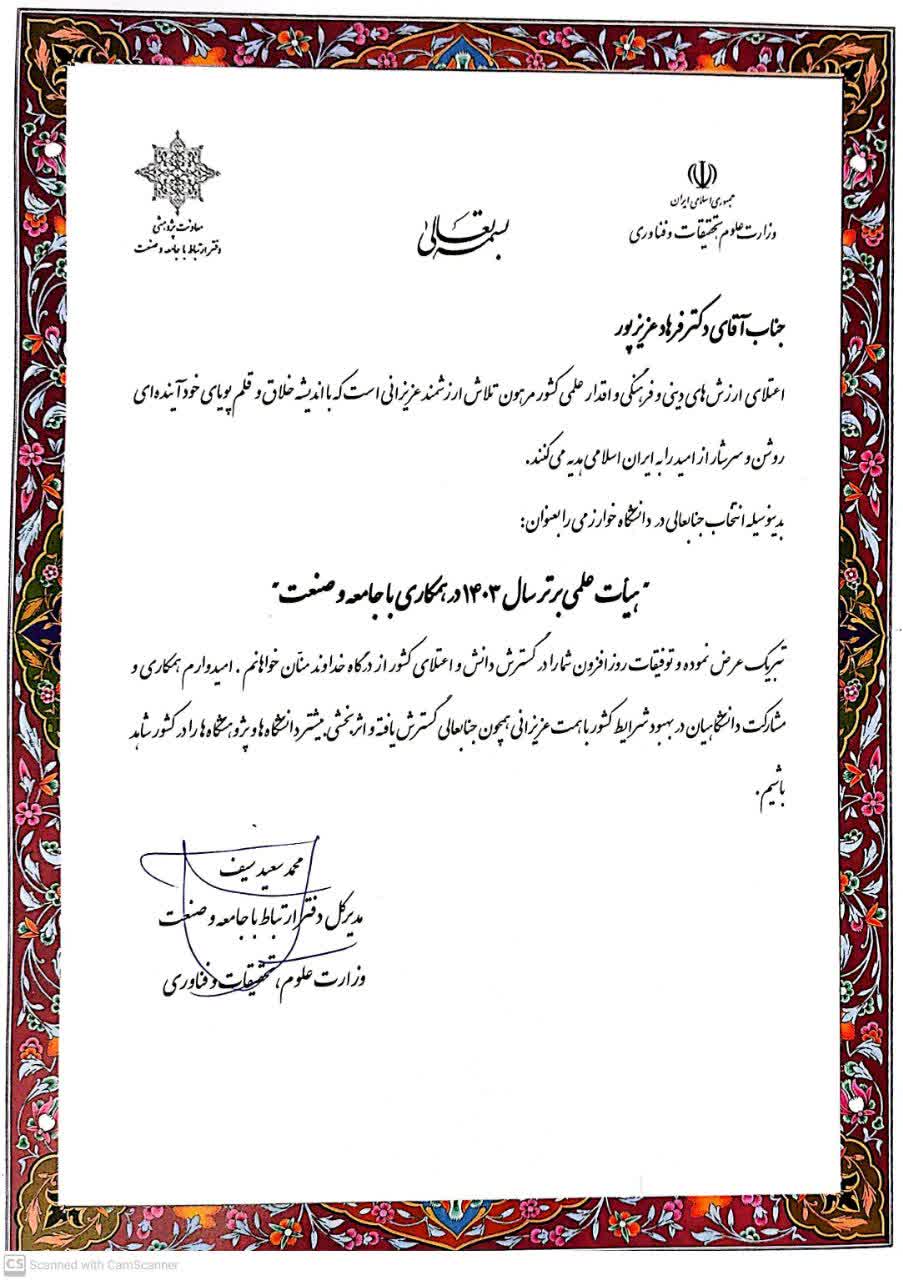 جمهوری اسلامی ایران
وزارت علوم، تحقیقات و فناوری
بسمه تعالی
معاونت پژوهشی
دفتر ارتباط با جامعه و صنعت
جناب آقای دکتر فرهاد عزیزپور
اعتلای ارزش های دینی و فرهنگی و اقتدار علمی کشور مرهون تلاش ارزشمند عزیزانی است که با اندیشه خلاق و قلم پویای خود آینده ای
روشن و سرشار از امید را به ایران اسلامی هدیه می کنند.
بدینوسیله انتخاب جنابعالی در دانشگاه خوارزمی را بعنوان:
"هیأت علمی برتر سال ۱۴۰۳ در همکاری با جامعه و صنعت"
تبریک عرض نموده و توفیقات روزافزون شما را در گسترش دانش و اعتلای کشور از درگاه خداوند منّان خواهانم. امیدوارم همکاری و
مشارکت دانشگاهیان در بهبود شرایط کشور با همت عزیزانی همچون جنابعالی گسترش یافته و اثربخشی بیشتر دانشگاه ها و پژوهشگاه ها را در کشور شاهد
باشیم.
محمد سعید سیف
مدیرکل دفتر ارتباط با جامعه و صنعت
وزارت علوم، تحقیقات و فناوری
CS Scanned with CamScanner